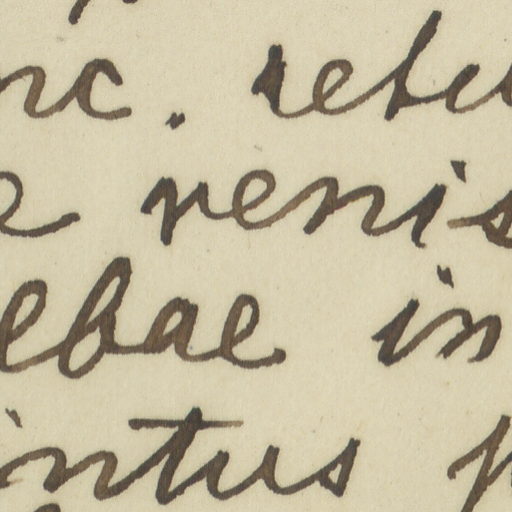 nc. retu
a venis
ebae in
intus p